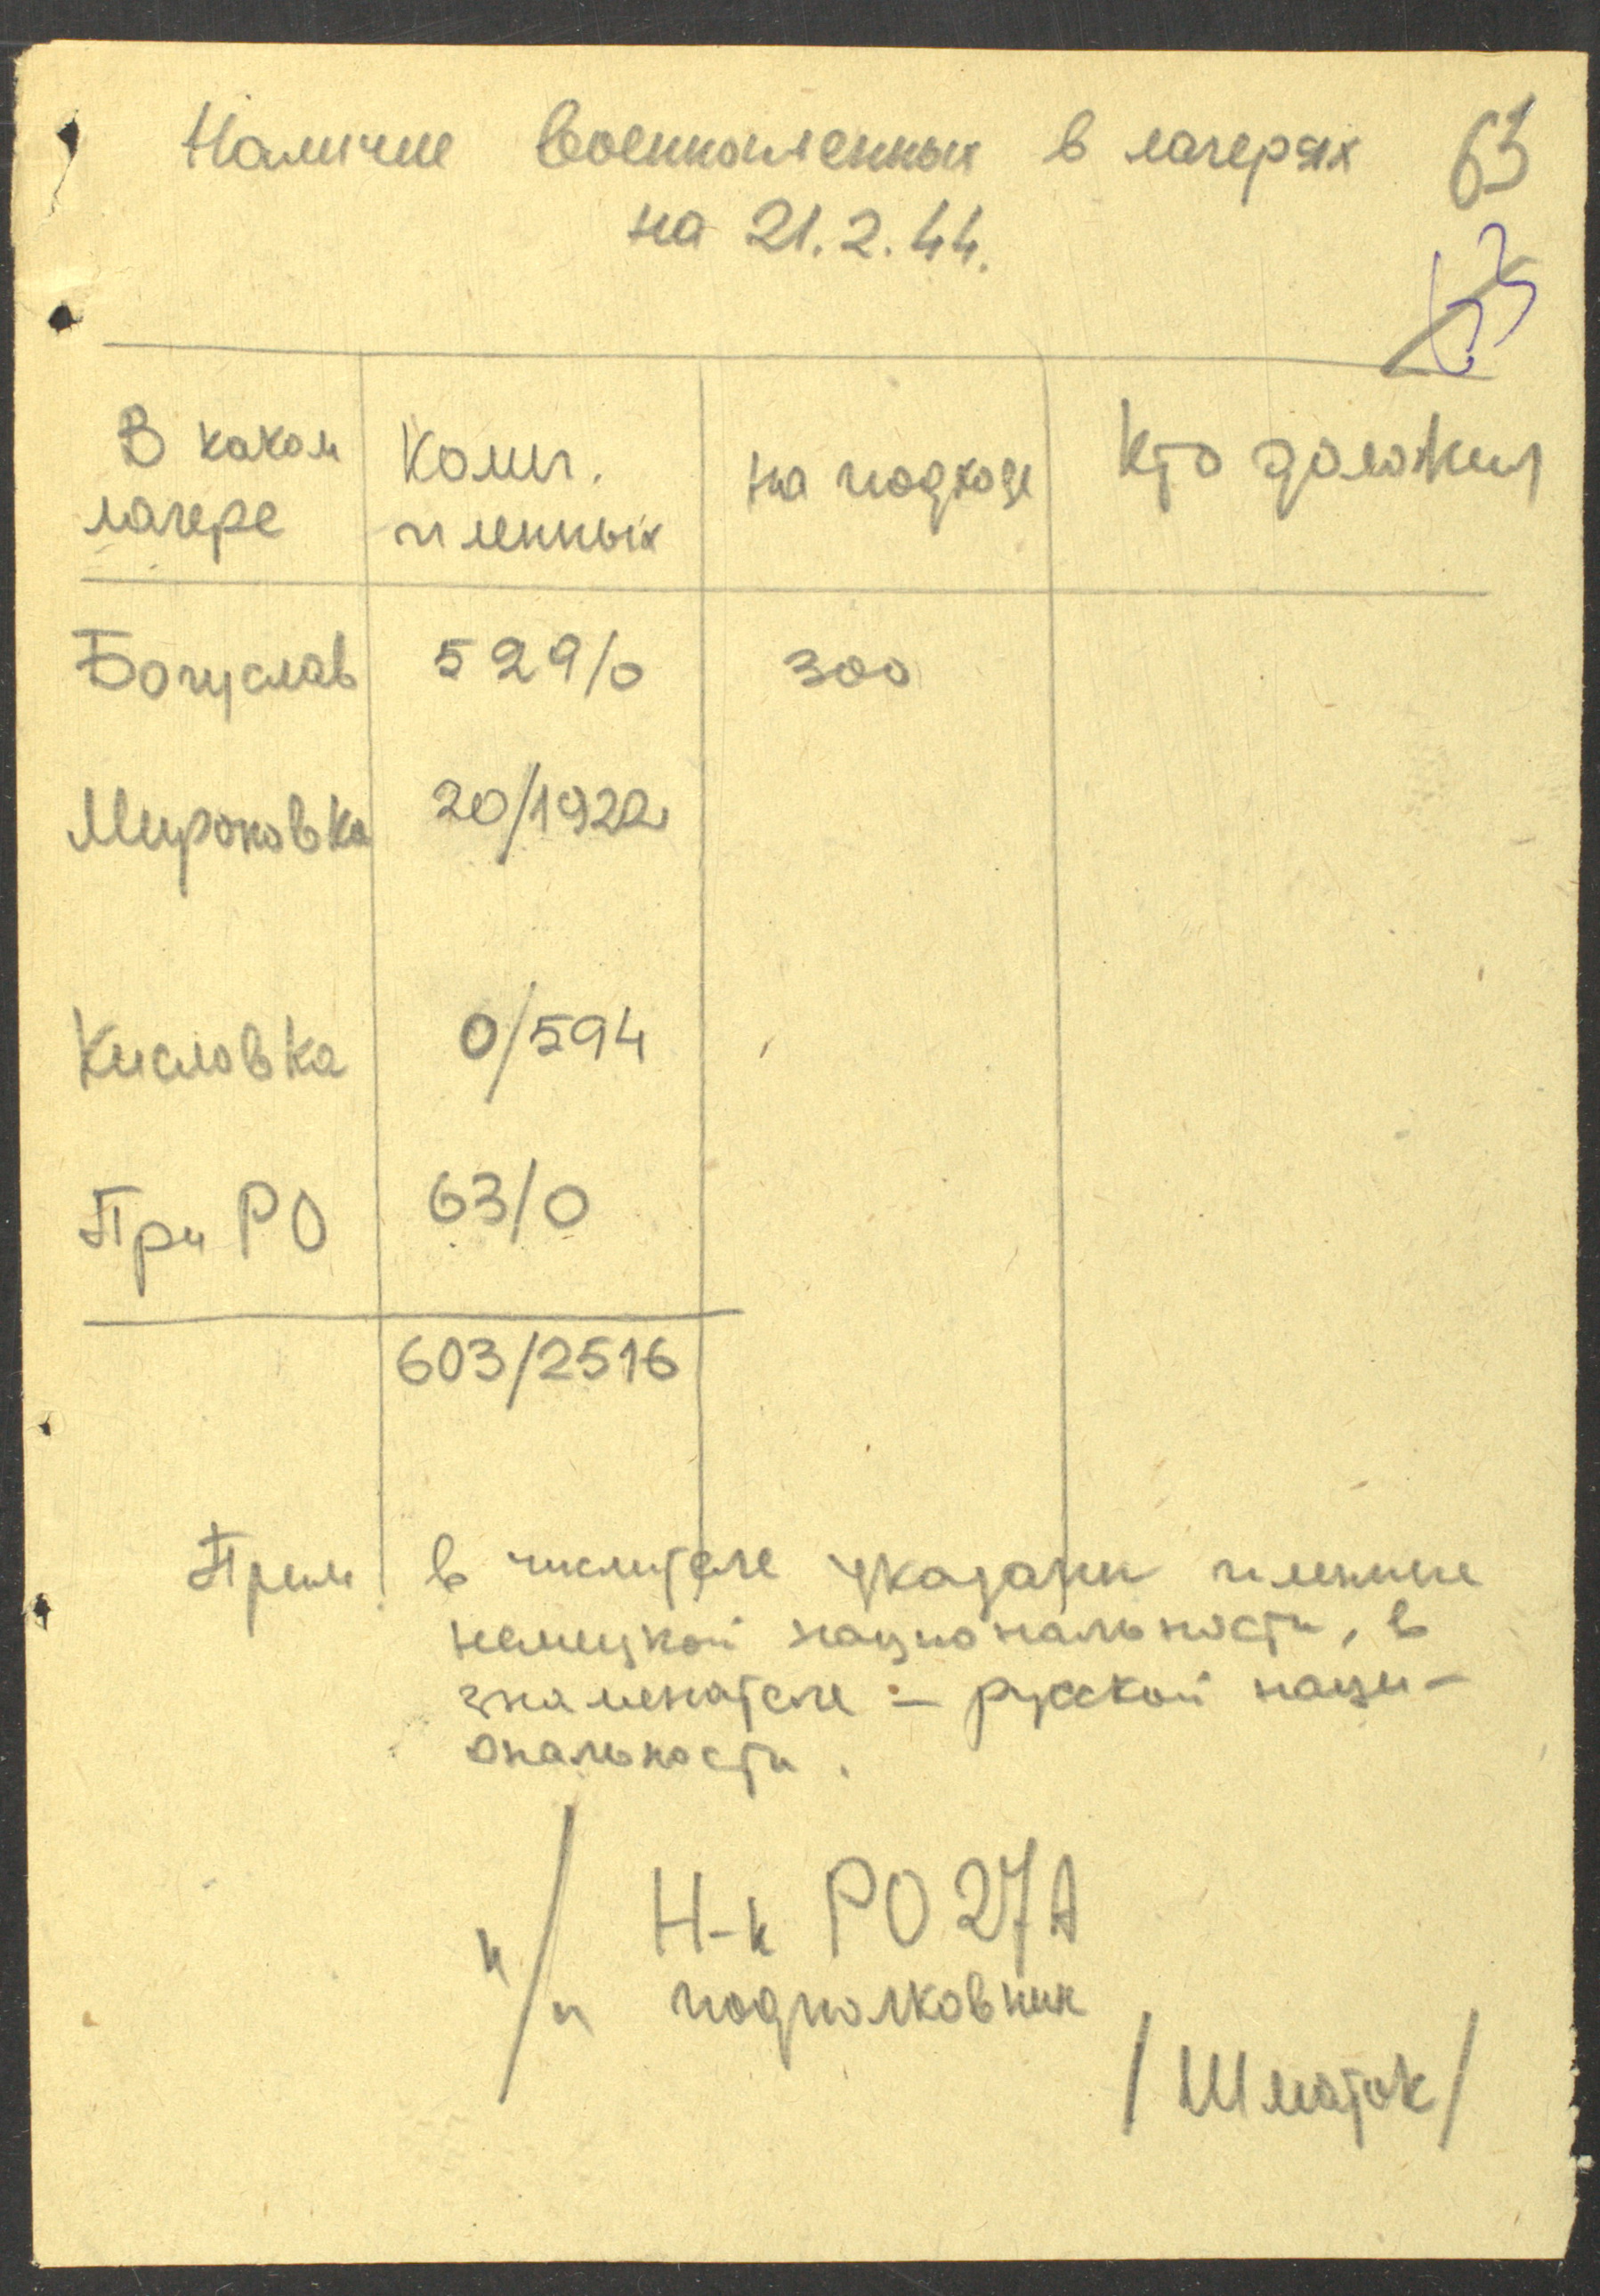 Наличие военнопленных в лагерях 63
на 21.2.44.
63
В каком лагере
Колич. пленных
на подходе
Кто доложил
Богуслав 529/0 300
Мироновка 20/1922
Кисловка 0/594
При РО 63/0
603/2516
Прим в числителе указаны пленные
немецкой национальности, в
знаменателе – русской наци-
ональности.
п/п Н-к РО 27А
подполковник
/Шматок/